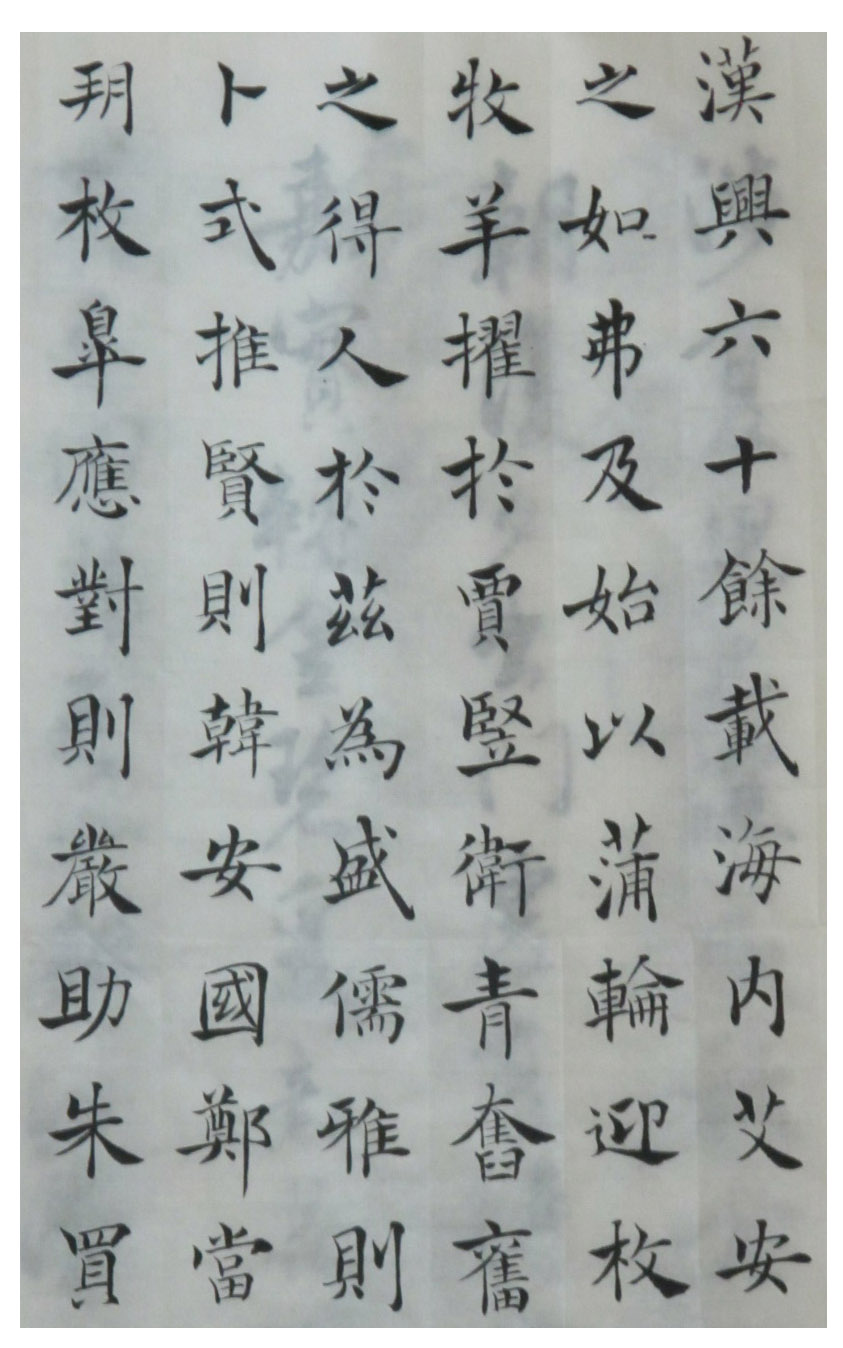 漢興六十餘載海内艾安
之如弗及始以蒲輪迎枚
牧羊擢於賈豎衛青奮奮
之得人於茲為盛儒雅則
卜式推賢則韓安國鄭當
朔枚皐應對則嚴助朱買